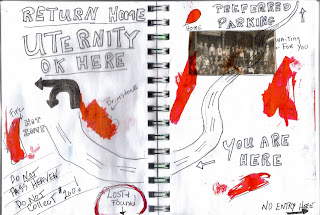 RETURN HOME
UTERNITY
OR HERE
Brimstone
Fire
HOT
ZONE
DO NOT
PASS HEAVEN
DO NOT
COLLECT $200.00
LOST &
FOUND
PREFERRED
PARKING
HOME
WAITING
FOR YOU
YOU ARE
HERE
NO ENTRY HERE